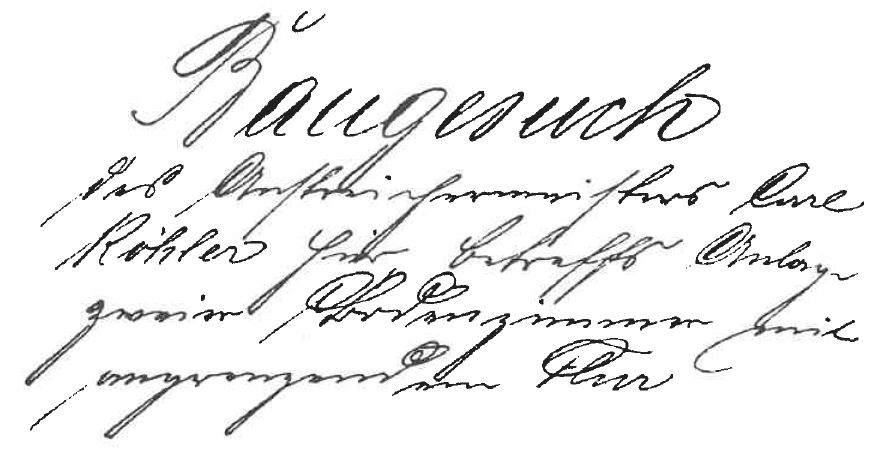 Baugesuch
des Anstreichermeisters Carl
Köhler hier betreffs Anlage
zweier Bodenzimmer mit
angrenzendem Flur